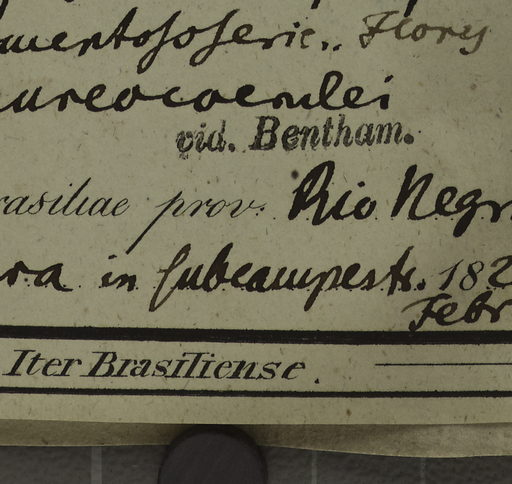 mentososeric.. Flory
ureocoerulei
vid. Bentham.
rasiliae prov. Rio Negr
ra in subcampestr. 182
Febr
Iter Brasiliense.